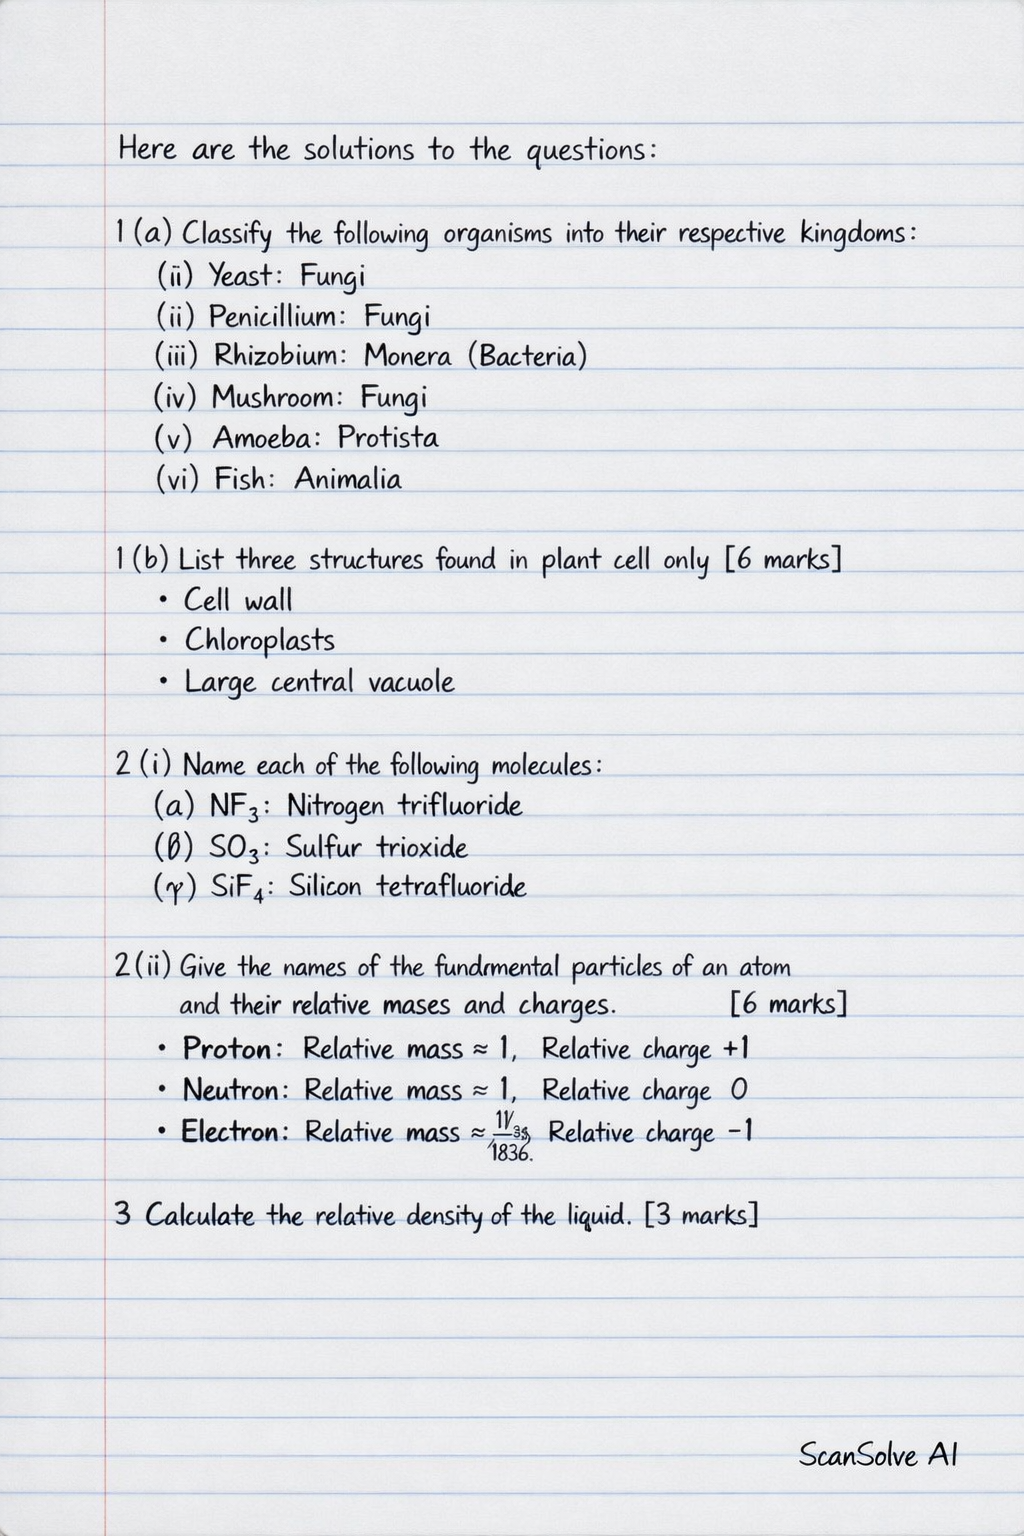 Here are the solutions to the questions:
1 (a) Classify the following organisms into their respective kingdoms:
(ii) Yeast: Fungi
(ii) Penicillium: Fungi
(iii) Rhizobium: Monera (Bacteria)
(iv) Mushroom: Fungi
(v) Amoeba: Protista
(vi) Fish: Animalia
1 (b) List three structures found in plant cell only [6 marks]
• Cell wall
• Chloroplasts
• Large central vacuole
2 (i) Name each of the following molecules:
(a) NF₃: Nitrogen trifluoride
(β) SO₃: Sulfur trioxide
(γ) SiF₄: Silicon tetrafluoride
2 (ii) Give the names of the of an atom
and their relative mases and charges. [6 marks]
• Proton: Relative mass ≈ 1, Relative charge +1
• Neutron: Relative mass ≈ 1, Relative charge 0
• Electron: Relative mass ≈ Relative charge −1
1836.
3 Calculate the relative density of the liquid. [3 marks]
ScanSolve AI